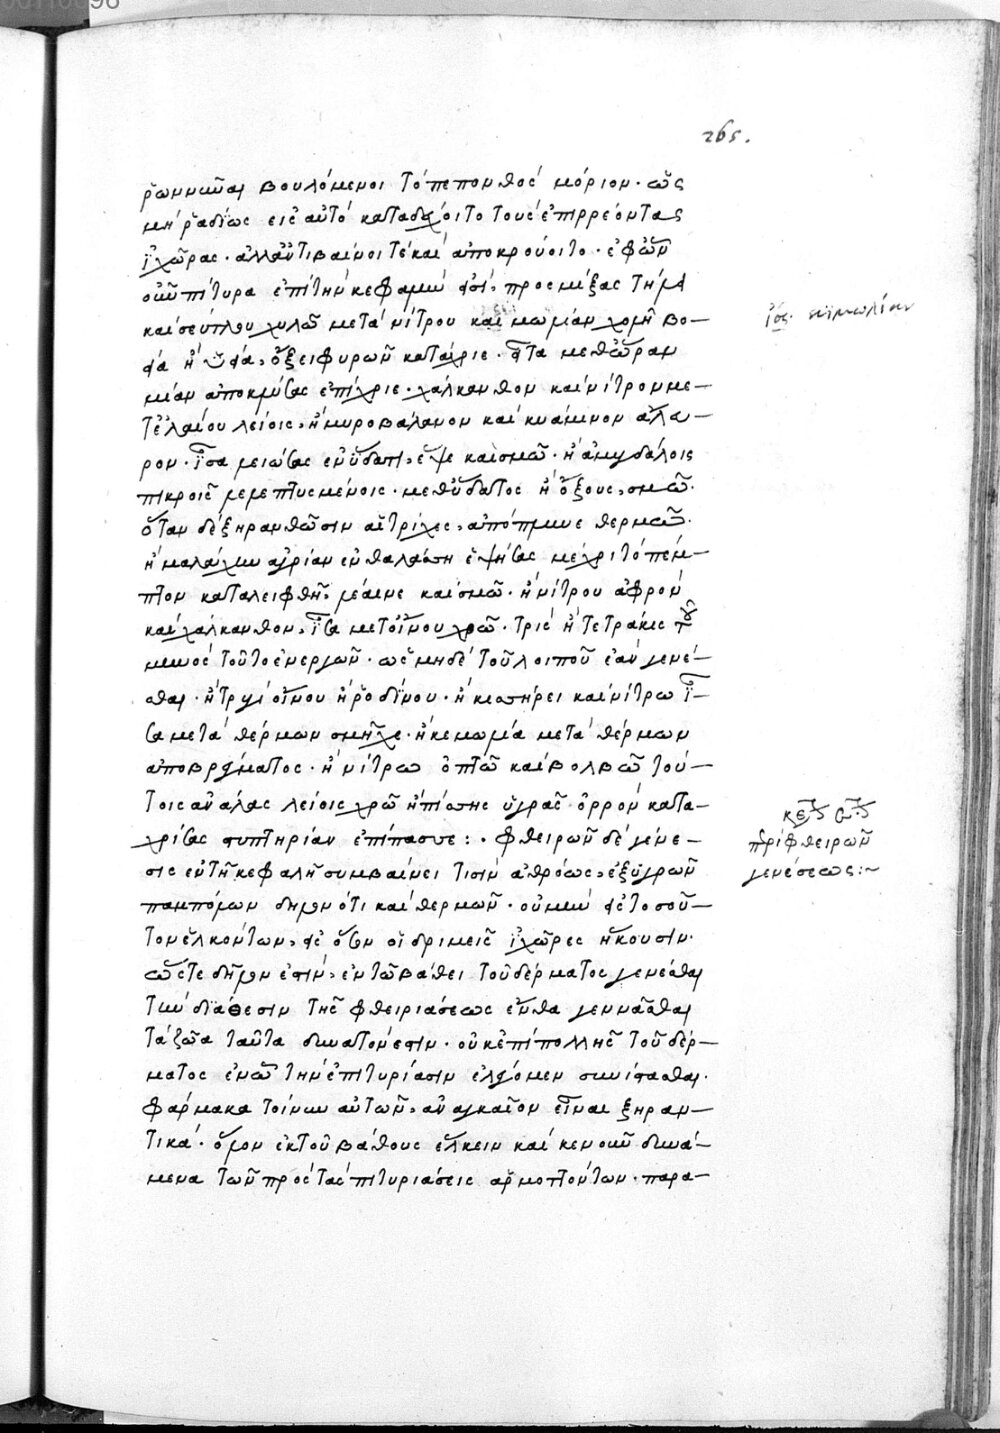 265.
ῥωννῦναι βουλόμενοι τὸ πεπονθὸς μόριον· ὡς
μὴ ῥαδίως εἰς αὐτὸ καταδέχοιτο τοὺς ἐπιρρέοντας
ἰχῶρας· ἀλλ' ἀντιβαίνοι τὲ καὶ ἀποκρούοιτο· ἐφ' ὧν
οὖν πίτυρα ἐπὶ τὴν κεφαλὴν
καὶ σεύτλου χυλῶ μετὰ νίτρου καὶ κιμωλίαν χολῆ βο–
ὄξει φυρῶν κατάχριε· εἶτα μεθ' ὥραν
μίαν ἀποκλύσας ἐπίχριε· χάλκανθον καὶ νίτρον με–
τ' ἐλαίου λείοις· ἢ μυροβάλανον καὶ κυάμινον ἄλευ–
ρον· ἴσα μειώσας ἐν ὕδατι, ἕψε καὶ σμῶ· ἢ ἀμυγδάλοις
πικροῖς λελεπτυσμένοις· μεθ' ὕδατος ἢ ὄξους, σμῶ·
ὅταν δὲ ξηρανθῶσιν αἱ τρίχες, ἀπόπλυνε θερμῶ·
ἢ μαλάχην ἀγρίαν ἐν θαλάσση ἑψήσας μέχρι τὸ πέμ–
πτον καταλειφθῆ, λέαινε καὶ σμῶ· ἢ νίτρου ἀφρὸν
καὶ χάλκανθον, ἴσα μετ' οἴνου χρῶ· τρὶς ἢ τετράκις τοῦ
μηνὸς τοῦτο ἐνεργῶν· ὡς μηδὲ τοῦ λοιποῦ ἐᾶν γενέ–
σθαι· ἢ τρυγὶ οἴνου ἢ ῥοδίνου· ἢ κισσήρει καὶ νίτρω ἴ–
σα μετὰ θέρμων σμῆχε· ἢ κιμωλία μετὰ θέρμων
ἀποβρέγματος· ἢ νίτρω ὀπτῶ καὶ βολβῶ τού–
τοις ἀναλας λείοις χρῶ ἢ πίσσης ὑγρᾶς ὀρρὸν κατα–
χρίσας στυπτηρίαν ἐπίπασσε:· φθειρῶν δὲ γένε–
σις ἐν τῆ κεφαλῆ συμβαίνει τισὶν ἀθρόως, ἐξ ὑγρῶν
παμπόλλων δηλονότι καὶ θερμῶν· οὐ μὴν γε τοσοῦ–
τον ἑλκόντων, γε ὅσον οἱ δριμεῖς ἰχῶρες ἥκουσιν·
ὥστε δῆλον ἐστὶν, ἐν τῶ βάθει τοῦ δέρματος γενέσθαι
τὴν διάθεσιν τῆς φθειριάσεως ἔνθα γεννᾶσθαι
τὰ ζῶα ταῦτα δυνατὸν ἐστιν· οὐκ ἐπιπολλῆς τοῦ δέρ–
ματος ἐν ὧ τὴν ἐπιτυρίασιν ἐλέγομεν συνίστασθαι·
φάρμακα τοίνυν αὐτῶν, ἀναγκαῖον εἶναι ξηραν–
τικά· ὅλον ἐκ τοῦ βάθους ἕλκειν καὶ κενοῦν δυνά–
μενα τῶν πρὸς τὰς πιτυριάσεις ἁρμοττόντων· παρα–
ἴσως κιμωλίαν
περὶ φθειρῶν
γενέσεως:~